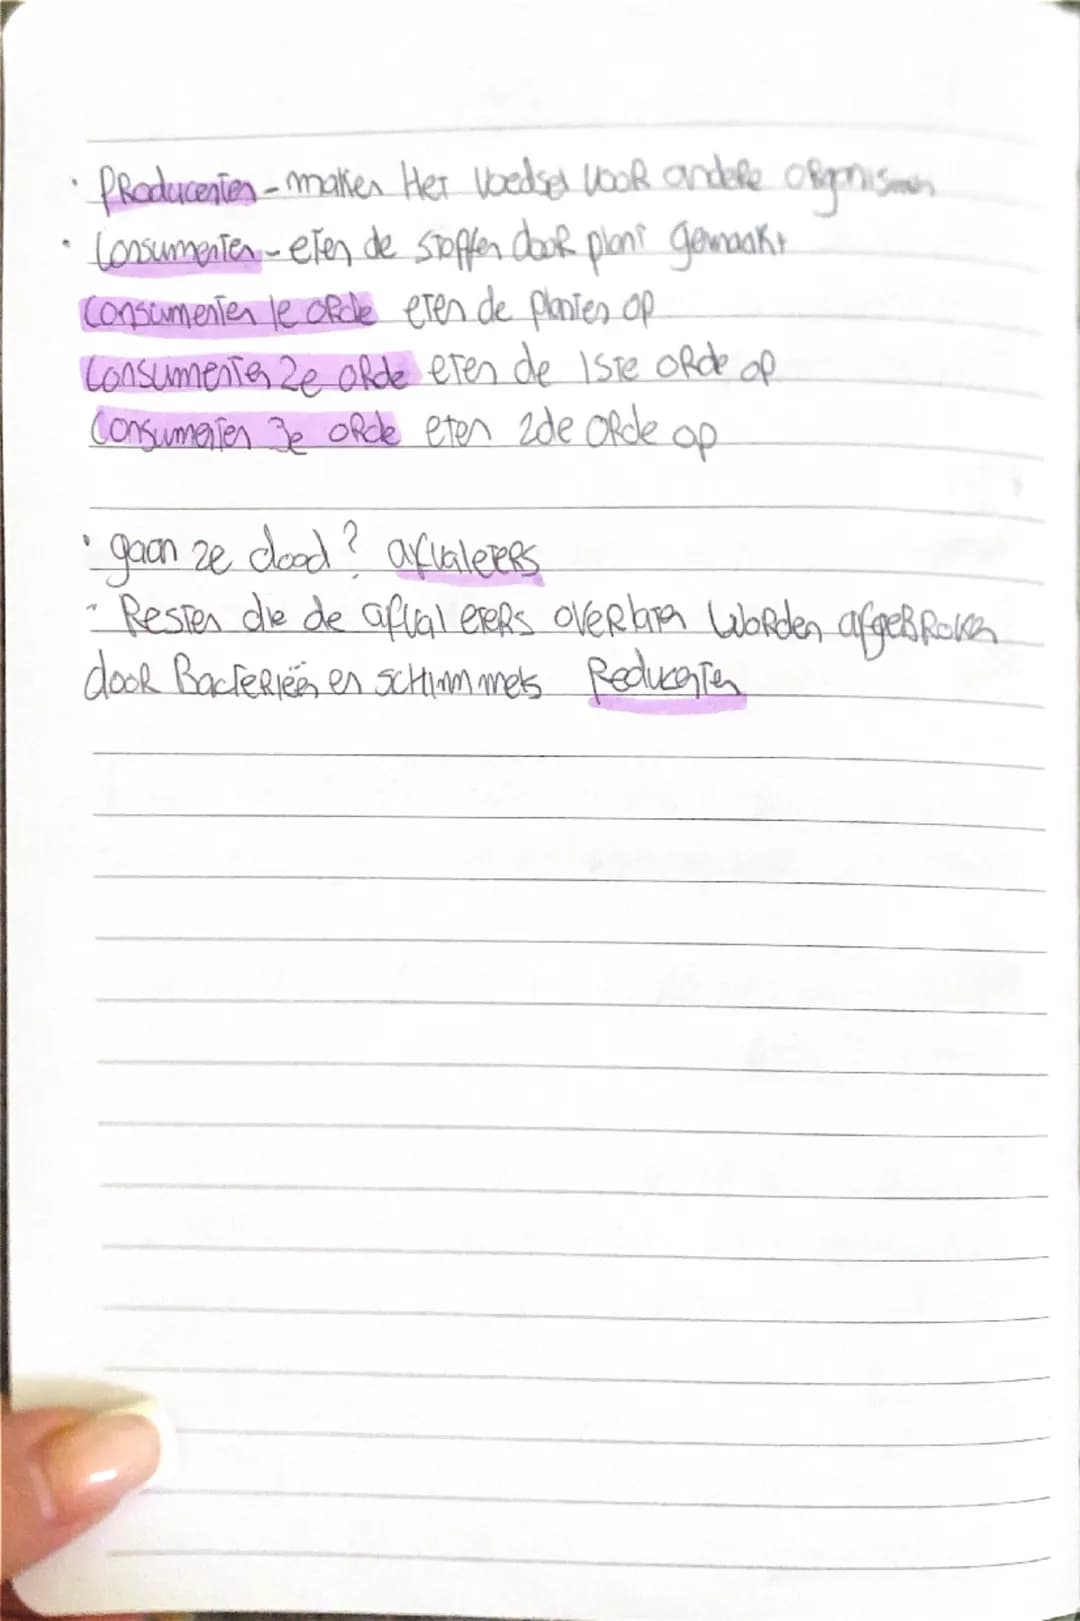 · Producenten - maken Het voedsel voor andere organismen
· Consumenten - eten de stoffen door plant gemaakt
Consumenten 1e orde eten de planten op
Consumenten 2e orde eten de 1ste orde op
Consumenten 3e orde eten 2de orde op
· gaan ze dood? afvaleters
- Resten die de afval eters overlaten worden afgebroken
door Bacteriëen en schimmels Reducenten